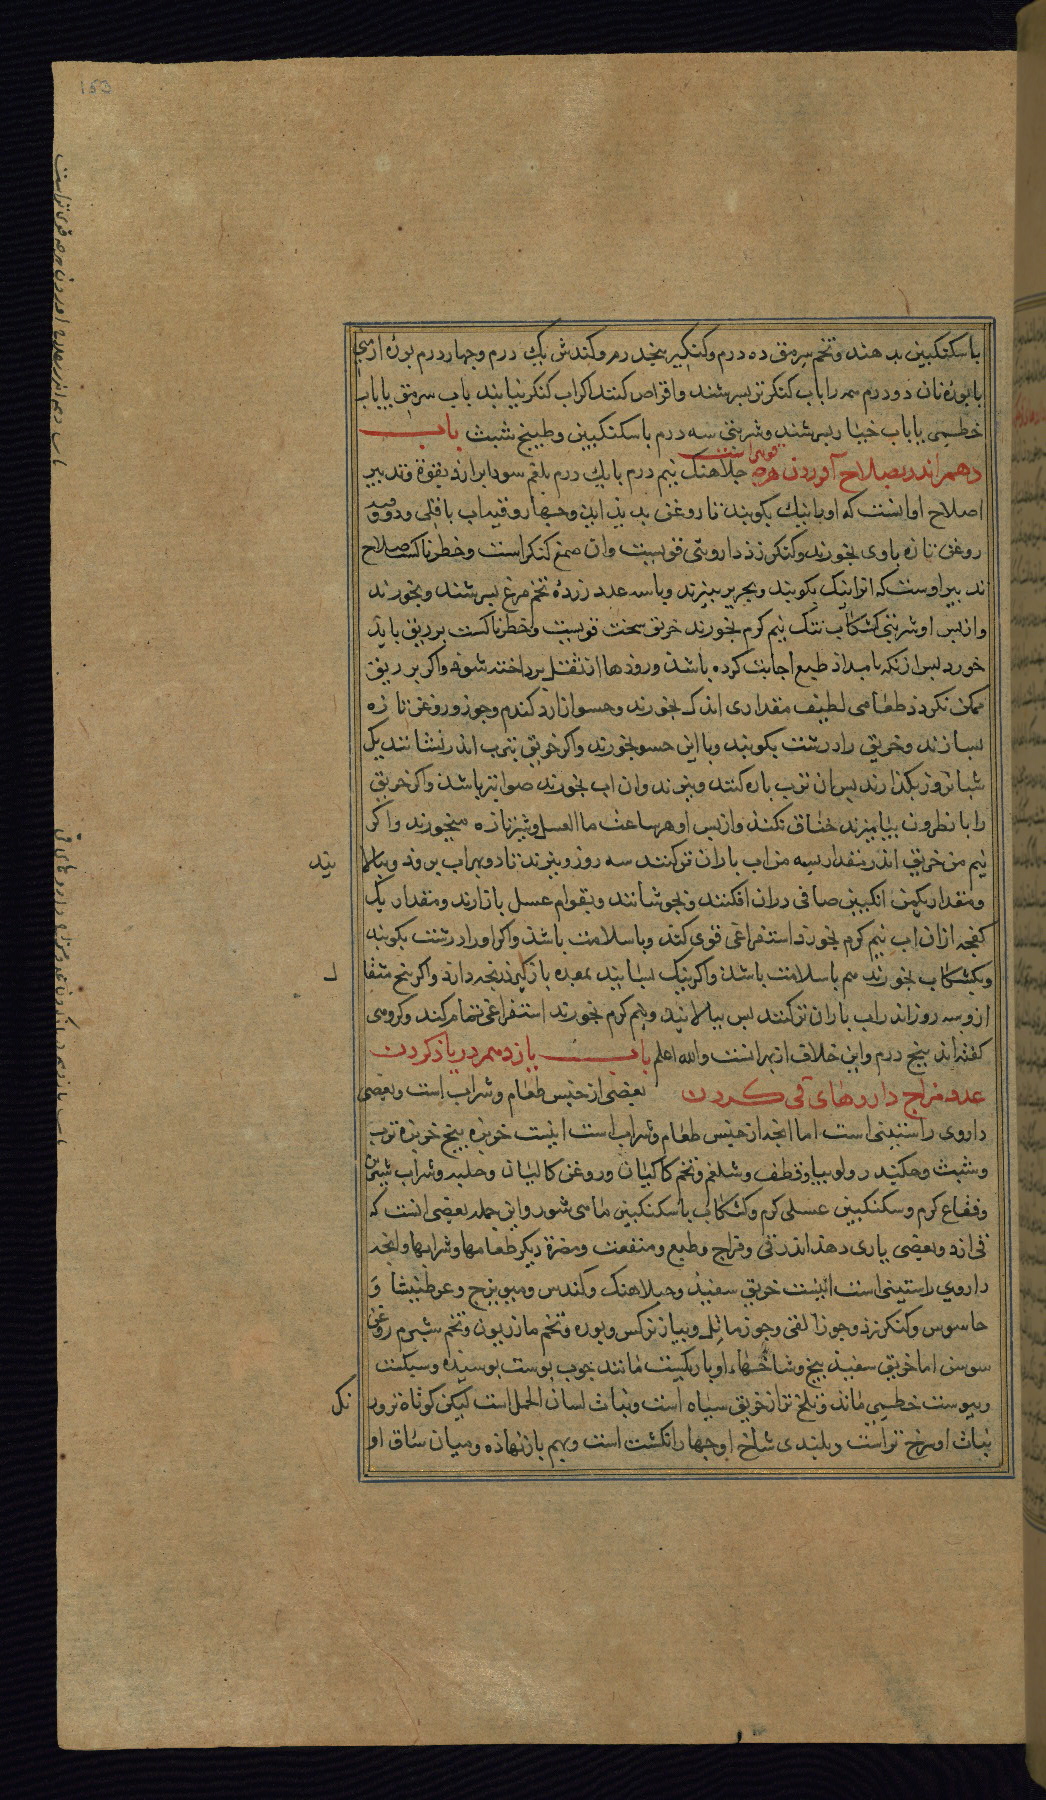 با سکنکبین بدهند و تخم سرمق ده درم و کنکبیر پنجدرم و کندش یک درم و چهار درم بوزه ارمنی
یا بوزه نان دو درم همه را باب کنکر تر بسرشند و اقراص کنند اگر اب کنکر نیابند باب سرمق یا باب
خطمی یا باب خیار بسرشند و شربتی سه درم با سکنکبین و طبیخ شبت باب
دهم اندر بصلاح آوردن هرچه قوی تر است جلاهنک نیم درم یا یک درم بلغم سودا براند بقوة و تدبیر
اصلاح او آنست که او را نیک بکوبند تا روغن بدید اید و چهار وقیه اب باقلی و دو وقیه
روغن تازه باوی بخورند و کنکرزد داروئی قویست و ان صمغ کنکر است و خطرناکست صلاح
تدبیر او ست که انرا نیک بکوبند و بحریر ببیزند و با سه عدد زرده تخم مرغ بسرشند و بخورند
و از پس او شربتی کشکاب تنک نیم کرم بخورند خربق سخت قویست و خطرناکست بر ریق باید
خورد پس از نکه بامداد طبع اجابت کرده باشد و رودها از ثقل پرداخته شود و اکر بر ریق
ممکن نکردد طعامی لطیف مقداری اندک بخورند و حسو از ارد کندم و جوز و روغن تازه
بسازند و خربق را درشت بکوبند و با این حسو بخورند و اکر خربق بترب اندر نشانند یک
شبانروز بکذارند پس ان ترب پاره کنند و بپزند و ان اب بخورند صوابتر باشد و اکر خربق
را با نطرون بیامیزند خناق نکند و از پس او هر ساعت ما العسل و شیر تازه میخورند و اکر
نیم من خربق اندر مقدار سه من اب باران تر کنند سه روز و بپزند تا دو بهر اب برود و بپالا
یند
و مقدار یکمن انکبین صافی در ان افکنند و بجوشانند و بقوام عسل باز ارند و مقدار یک
کفچه از ان اب نیم کرم بخورند استفراغی قوی کند و با سلامت باشد و اکر او را درشت بکوبند
و بکشکاب بخورند هم با سلامت باشد و اکر نیک بسایند بمعده باز کیرد رنجه دارد و اکر پنج مثقا
ل
ازو سه روز اندر اب باران تر کنند پس بپالایند و نیم کرم بخورند استفراغی تمام کند و کروهی
کفته اند پنج درم و این خلاف از بهر انست والله اعلم باب یازدهم در یاذ کردن
عدد مزاج داروهای قی کردن بعضی از جنس طعام و شراب است و بعضی
داروی راستینی است اما انچه از جنس طعام و شراب است اینست خربزه بیخ خربزه ترب
و شبث و حکندر و لوبیا و قطف و شلغم و تخم کاکیان و روغن کالیان و حلبه و شراب شیرین
و فقاع کرم و سکنکبین عسلی کرم و کشکاب با سکنکبین ما می شور و این جمله بعضی انست که
قی ارد و بعضی یاری دهد اندر قی و مزاج و طبع و منفعت و مضرة دیکر طعامها و شرابها و انچه
داروی راستینی است اینست خربق سفید و جبلاهنک و کندس و میویزج و عرطنیثا و
حاسوس و کنکرزد و جوز القی و جوز ماثل و پیاز نرکس و بوره و تخم مازریون و تخم شبرم روغن
سوسن اما خربق سفید بیخ و شاخهاء او باریکیست مانند چوب پوست پوسیده و سبکست
و بپوست خطمی ماند و تلخ تر از خربق سیاه است و نبات لسان الحمل است لیکن کوتاه تر و رنک
نک
نبات او سرخ تر است و بلندی شاخ او چهار انکشت است و بهم باز نهاذه و میان ساق او